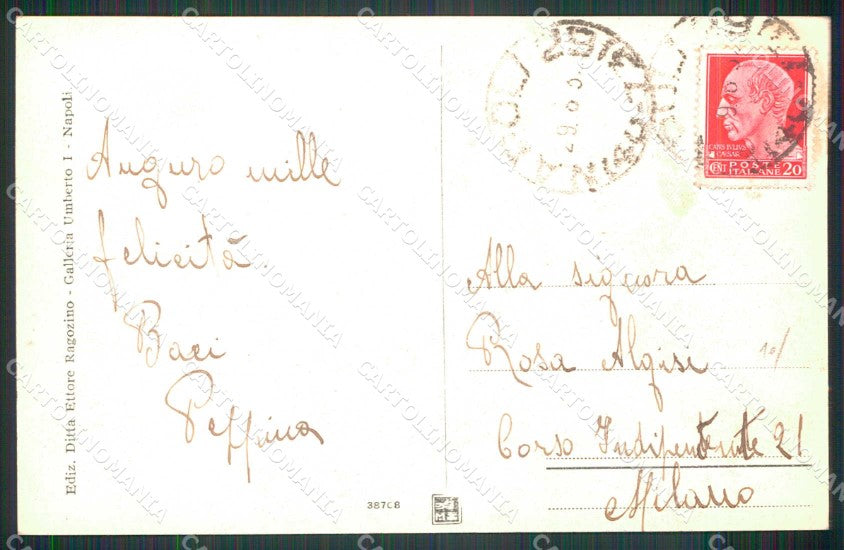 Ediz. Ditta Ettore Ragozino - Galleria Umberto I - Napoli
Auguro mille
felicità
Baci
Peppina
CAIVS IVLIVS
CAESAR
POSTE
CENT ITALIANE 20
Alla signora
Rosa Algisi
Corso Indipentente 21
Milano
38708
CARTOLINOMANIA